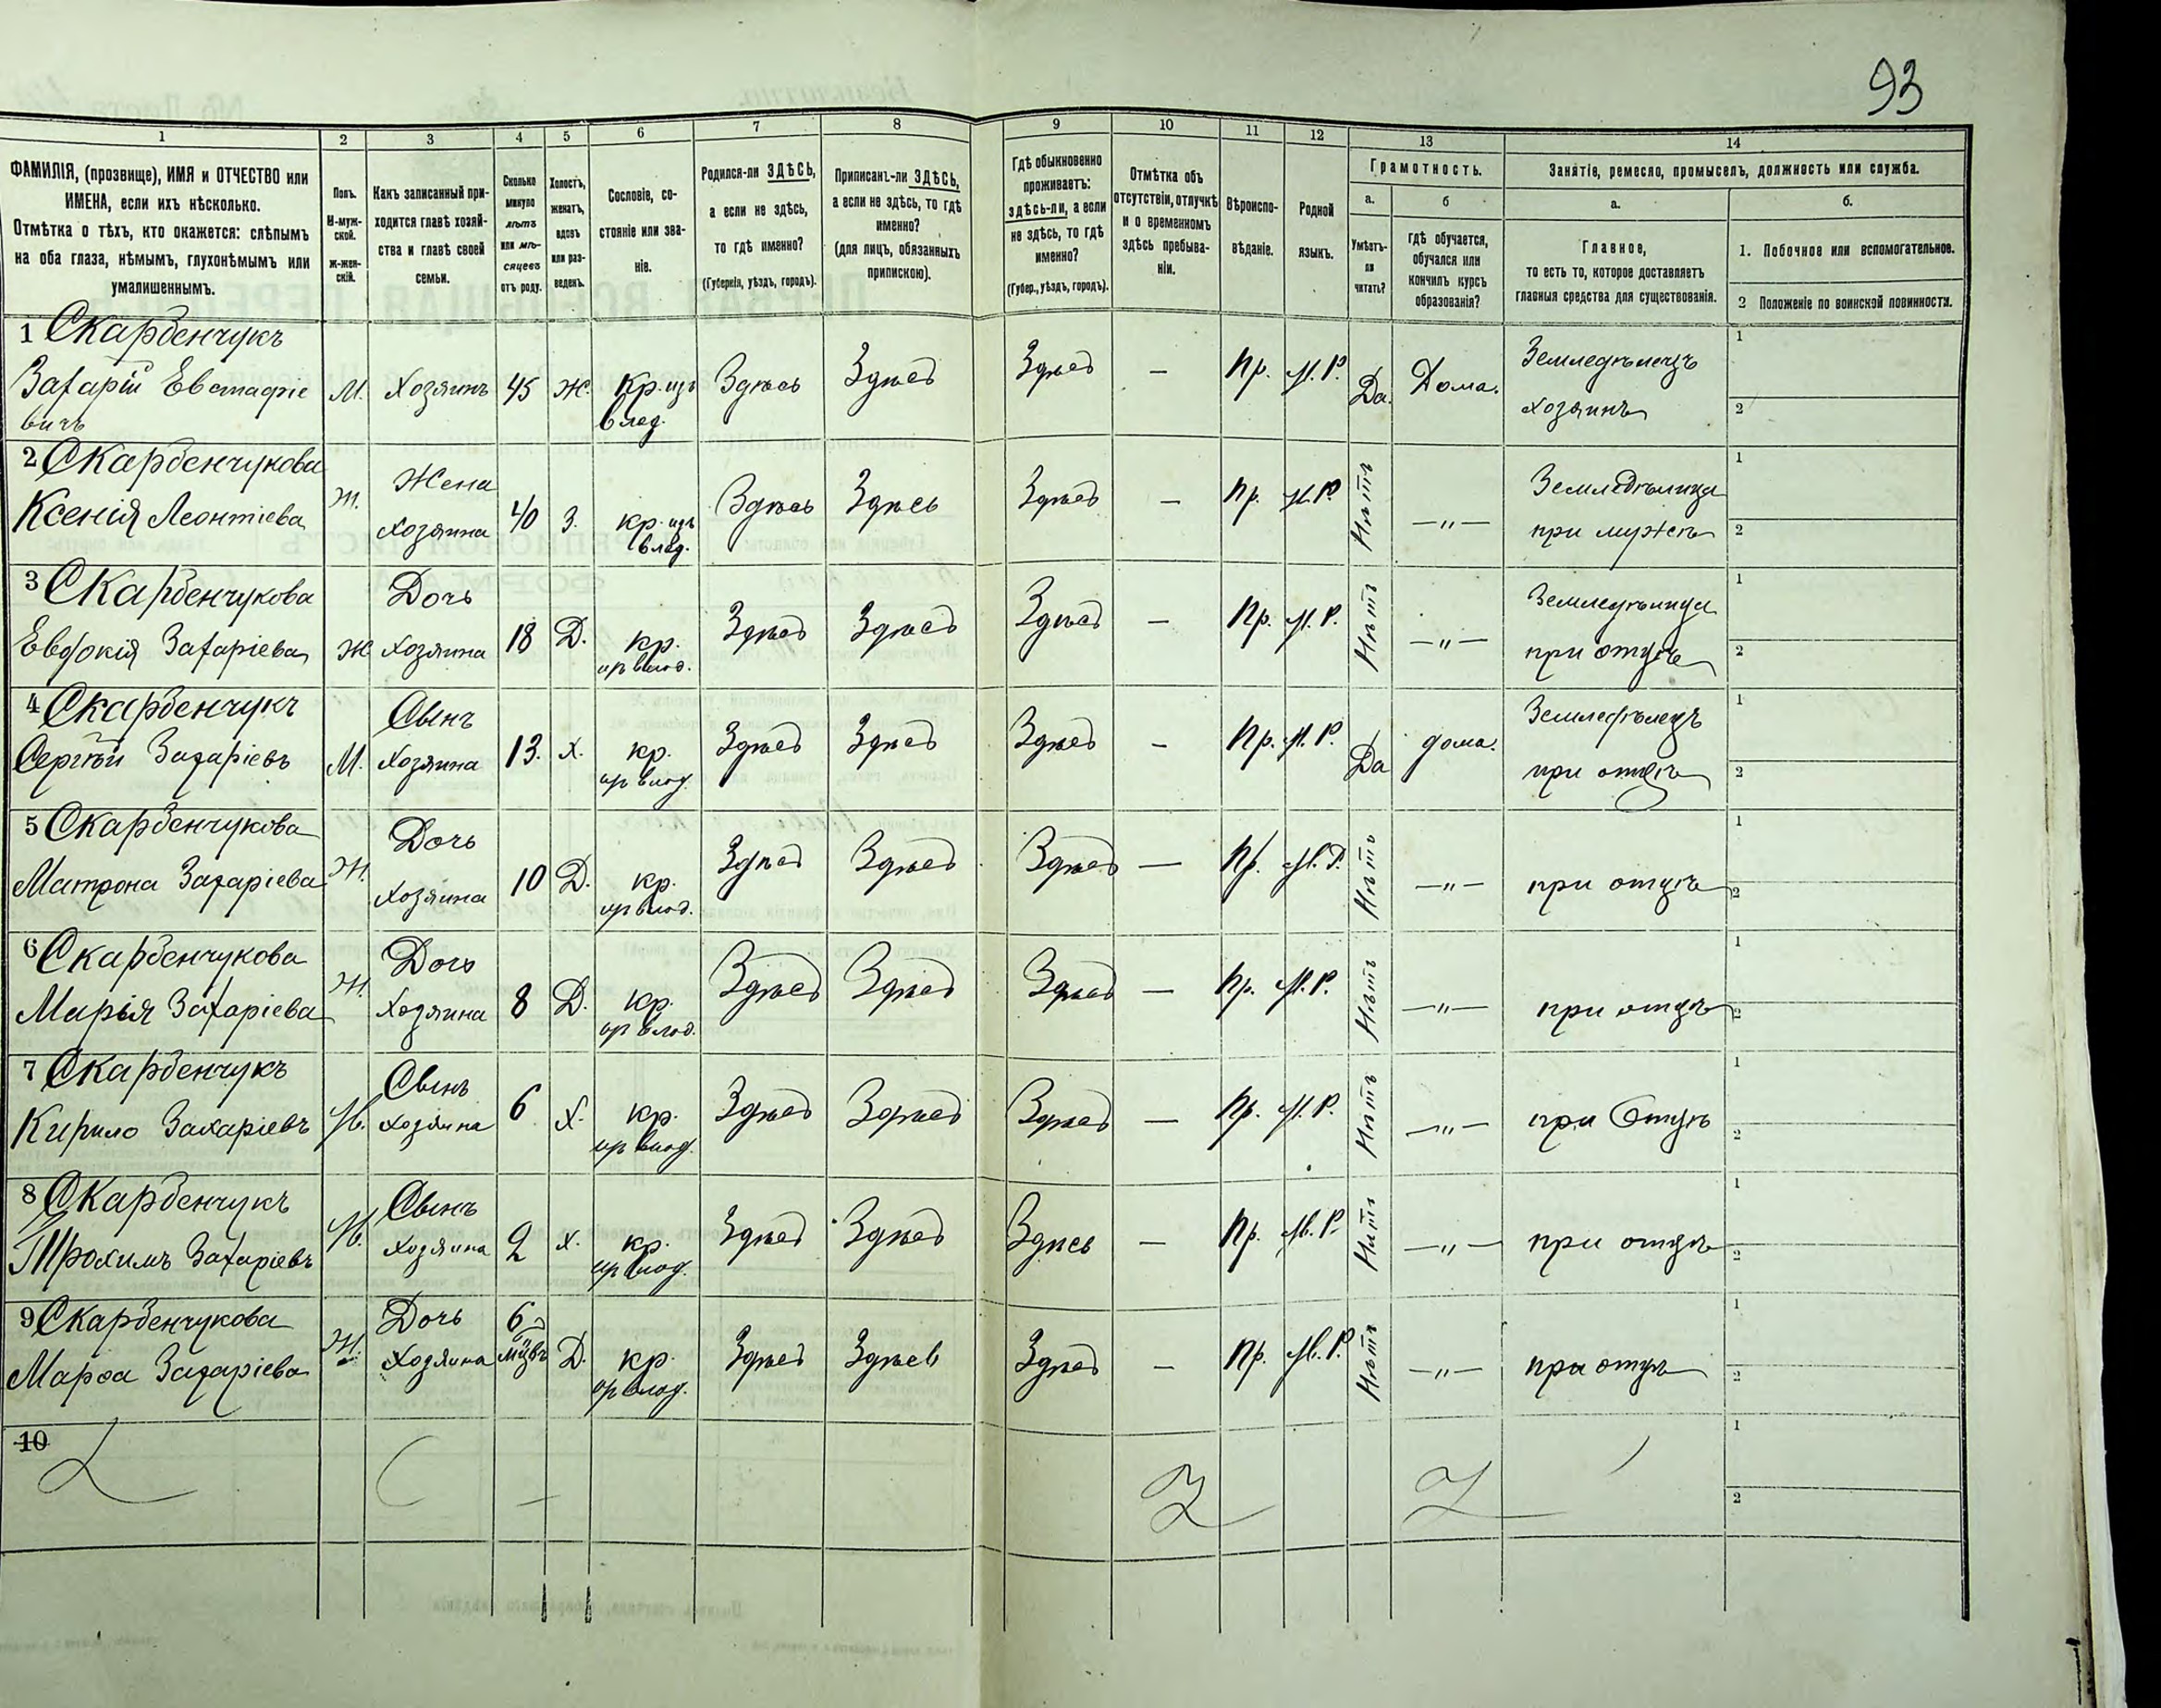 93
1
2
3
4
5
6
7
8
9
10
11
12
13
14
ФАМИЛІЯ, (прозвище), ИМЯ и ОТЧЕСТВО или
ИМЕНА, если ихъ нѣсколько.
Отмѣтка о тѣхъ, кто окажется: слѣпымъ
на оба глаза, нѣмымъ, глухонѣмымъ или
умалишеннымъ.
Полъ.
М-муж-
ской.
ж-жен-
скій.
Какъ записанный при-
ходится главѣ хозяй-
ства и главѣ своей
семьи.
Сколько
минуло
лѣтъ
или мѣ-
сяцевъ
отъ роду.
Холостъ,
женатъ,
вдовъ
или раз-
веденъ.
Сословіе, со-
стояніе или зва-
ніе.
Родился-ли ЗДѢСЬ,
а если не здѣсь,
то гдѣ именно?
(Губернія, уѣздъ, городъ).
Приписанъ-ли ЗДѢСЬ,
а если не здѣсь, то гдѣ
именно?
(для лицъ, обязанныхъ
припискою).
Гдѣ обыкновенно
проживаетъ:
здѣсь-ли, а если
не здѣсь, то гдѣ
именно?
(Губер., уѣздъ, городъ).
Отмѣтка объ
отсутствіи, отлучкѣ
и о временномъ
здѣсь пребыва-
ніи.
Вѣроиспо-
вѣданіе.
Родной
языкъ.
Грамотность.
а.
Умѣетъ-
ли
читать?
б
гдѣ обучается,
обучался или
кончилъ курсъ
образованія?
Занятіе, ремесло, промыселъ, должность или служба.
а.
Главное,
то есть то, которое доставляетъ
главныя средства для существованія.
б.
1. Побочное или вспомогательное.
2 Положеніе по воинской повинности.
1 Скарбенчукъ
Захарій Евстафіе
вичъ
М. Хозяинъ 45 Ж. Кр. изъ
влад.
Здѣсь Здѣсь Здѣсь — Пр. М.Р. Да. Дома.
Земледѣлецъ
хозяинъ
1
2
2 Скарбенчукова
Ксенія Леонтіева
Ж. Жена
хозяина 40 З. кр. изъ
влад.
Здѣсь Здѣсь Здѣсь — Пр. М.Р. Нѣтъ —"—
Земледѣлица
при мужѣ
1
2
3 Скарбенчукова
Евдокія Захаріева
Ж Дочь
хозяина 18 Д. кр.
Здѣсь Здѣсь Здѣсь — Пр. М.Р. Нѣтъ —"—
Земледѣлица
при отцѣ
1
2
4 Скарбенчукъ
Сергѣй Захаріевъ
М. Сынъ
хозяина 13. Х. кр.
Здѣсь Здѣсь Здѣсь — Пр. М.Р. Да дома.
Земледѣлецъ
при отцѣ
1
2
5 Скарбенчукова
Матрона Захаріева
Ж. Дочь
хозяина 10 Д. кр.
Здѣсь Здѣсь Здѣсь — Пр. М.Р. Нѣтъ —"—
при отцѣ
1
2
6 Скарбенчукова
Марія Захаріева
Ж. Дочь
хозяина 8 Д. кр.
Здѣсь Здѣсь Здѣсь — Пр. М.Р. Нѣтъ —"—
при отцѣ
1
2
7 Скарбенчукъ
Кирило Захаріевъ
М. Сынъ
хозяина 6 Х. кр.
Здѣсь Здѣсь Здѣсь — Пр. М.Р. Нѣтъ —"—
при Отцѣ
1
2
8 Скарбенчукъ
Трохимъ Захаріевъ
М. Сынъ
хозяина 2 х. кр.
Здѣсь Здѣсь Здѣсь — Пр. М.Р. Нѣтъ —"—
при отцѣ
1
2
9 Скарбенчукова
Марѳа Захаріева
Ж. Дочь
хозяина 6 Д. кр.
Здѣсь Здѣсь Здѣсь — Пр. М.Р. Нѣтъ —"—
при отцѣ
1
2
10
1
2